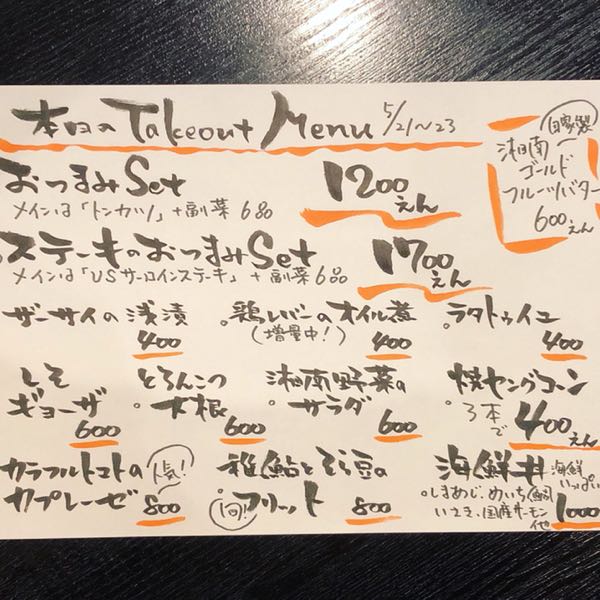 本日のTakeout Menu 5/21〜23
自家製
湘南
ゴールド
フルーツバター
600えん
おつまみSet 1200えん
メインは「トンカツ」+副菜6品
ステーキのおつまみSet 1700えん
メインは「USサーロインステーキ」+副菜6品
ザーサイの浅漬 400
鶏レバーのオイル煮
(増量中!) 400
ラタトゥイユ 400
しそ
ギョーザ 600
とろんこつ
大根 600
湘南野菜の
サラダ 600
焼ヤングコーン
3本で 400えん
カラフルトマトの 人気!
カプレーゼ 800
稚鮎とそら豆の
フリット 800
海鮮丼 海鮮いっぱい
しまあじ、めいち鯛
いさき、国産サーモン
他 1000